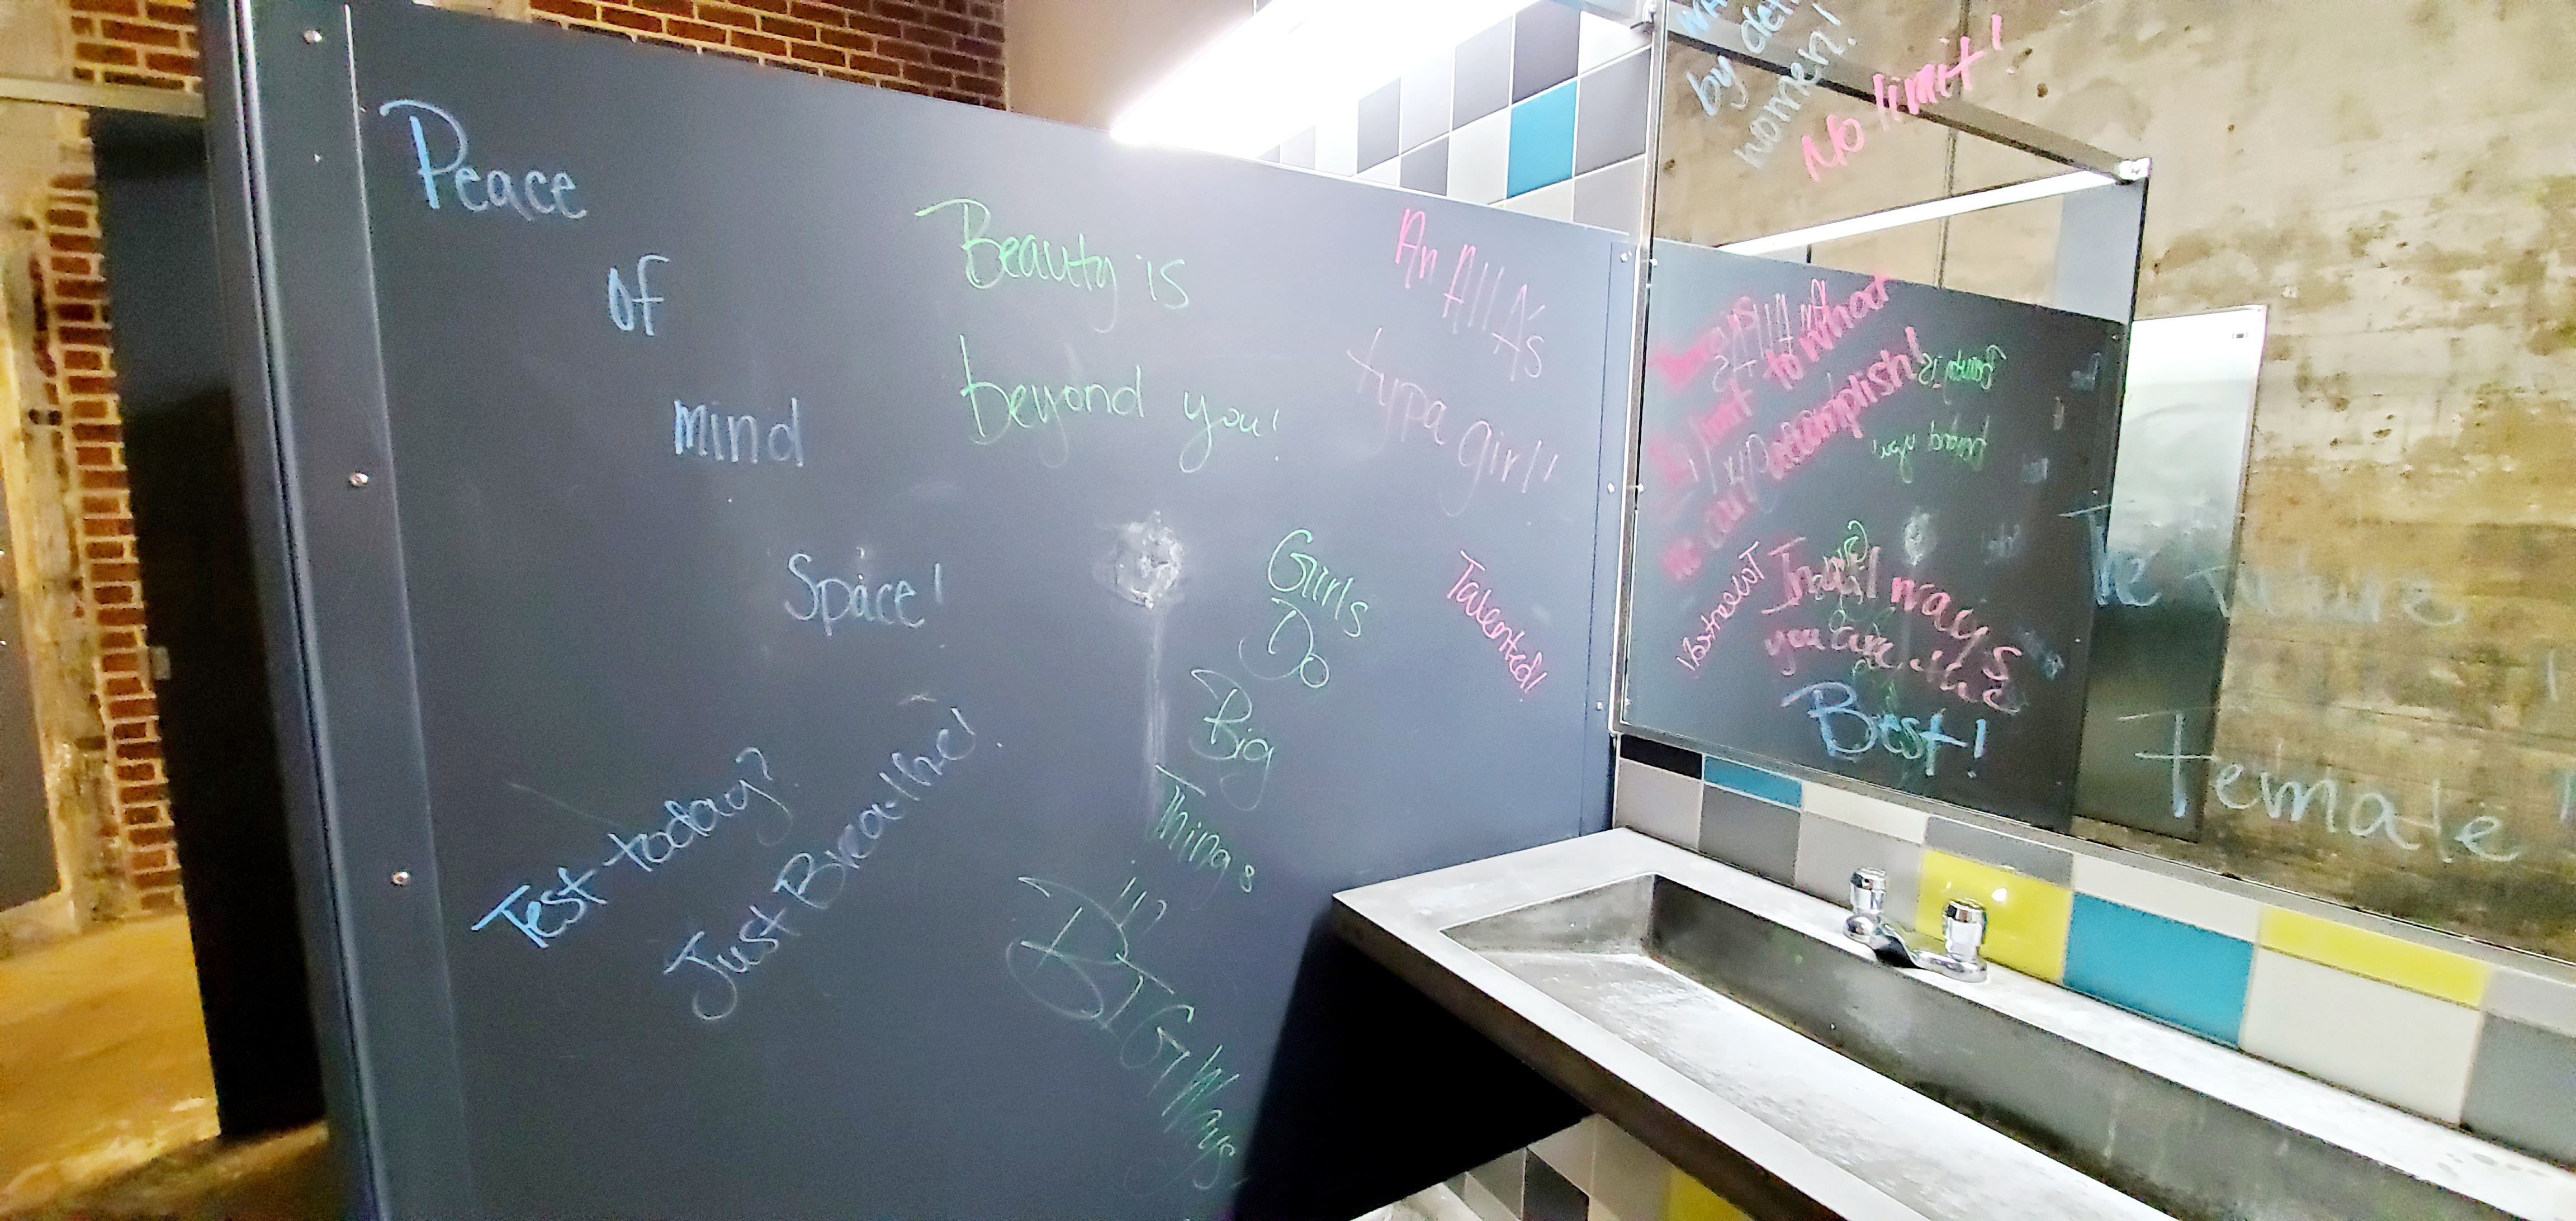 Peace
of
mind
Space!
Beauty is
beyond you!
An All A's
typa girl!
Girls
Do
Big
Things
in
BIG Ways
Talented!
Test today?
Just Breathe!
by
women!
No limit!
limit to what
we can accomplish!
In all ways
you are the
Best!
The Future
Female